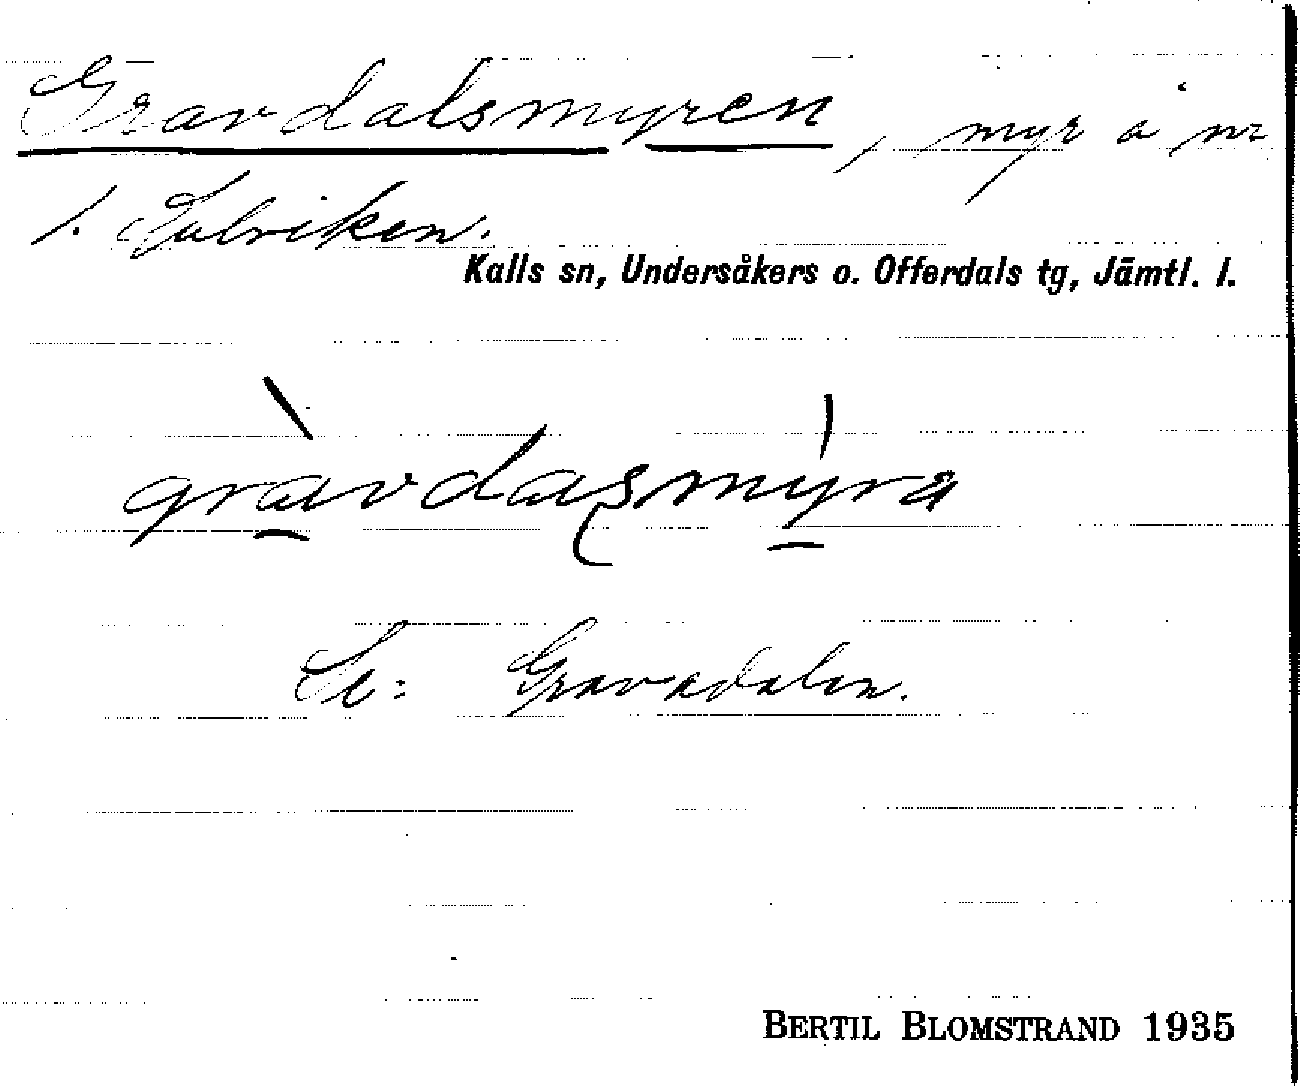 Gravdalsmyren, myr å nr
1. Sulviken.
Kalls sn, Undersåkers o. Offerdals tg, Jämtl. l.
gràvdasmýra
Se: Gravadalen.
BERTIL BLOMSTRAND 1935